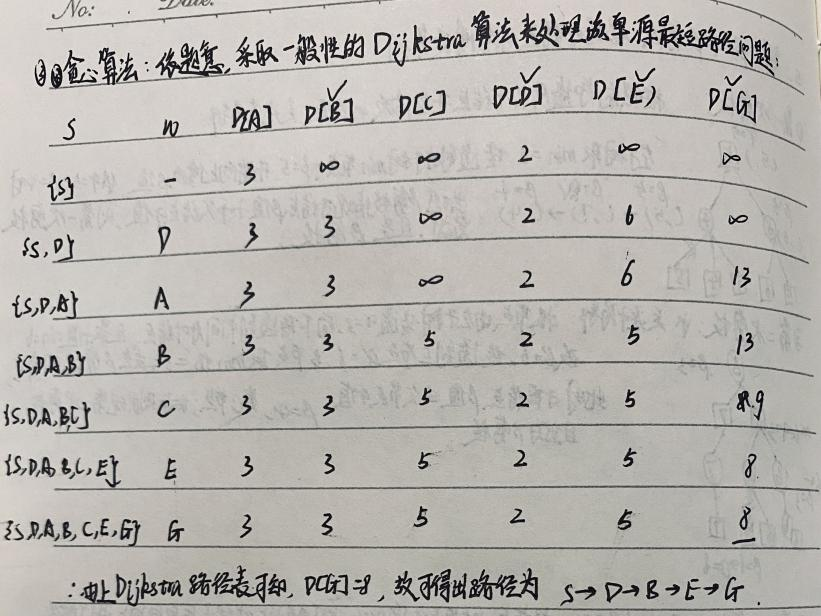 No: Date:
贪心算法：依题意，采取一般性的Dijkstra算法来处理该单源最短路径问题：
S w D[A] D[B] D[C] D[D] D[E] D[G]
{S} - 3 ∞ ∞ 2 ∞ ∞
{S,D} D 3 3 ∞ 2 6 ∞
{S,D,A} A 3 3 ∞ 2 6 13
{S,D,A,B} B 3 3 5 2 5 13
{S,D,A,B,C} C 3 3 5 2 5 9
{S,D,A,B,C,E} E 3 3 5 2 5 8
{S,D,A,B,C,E,G} G 3 3 5 2 5 8
∴由上Dijkstra路径表可知，D[G]=8，故可得出路径为 S→D→B→E→G.